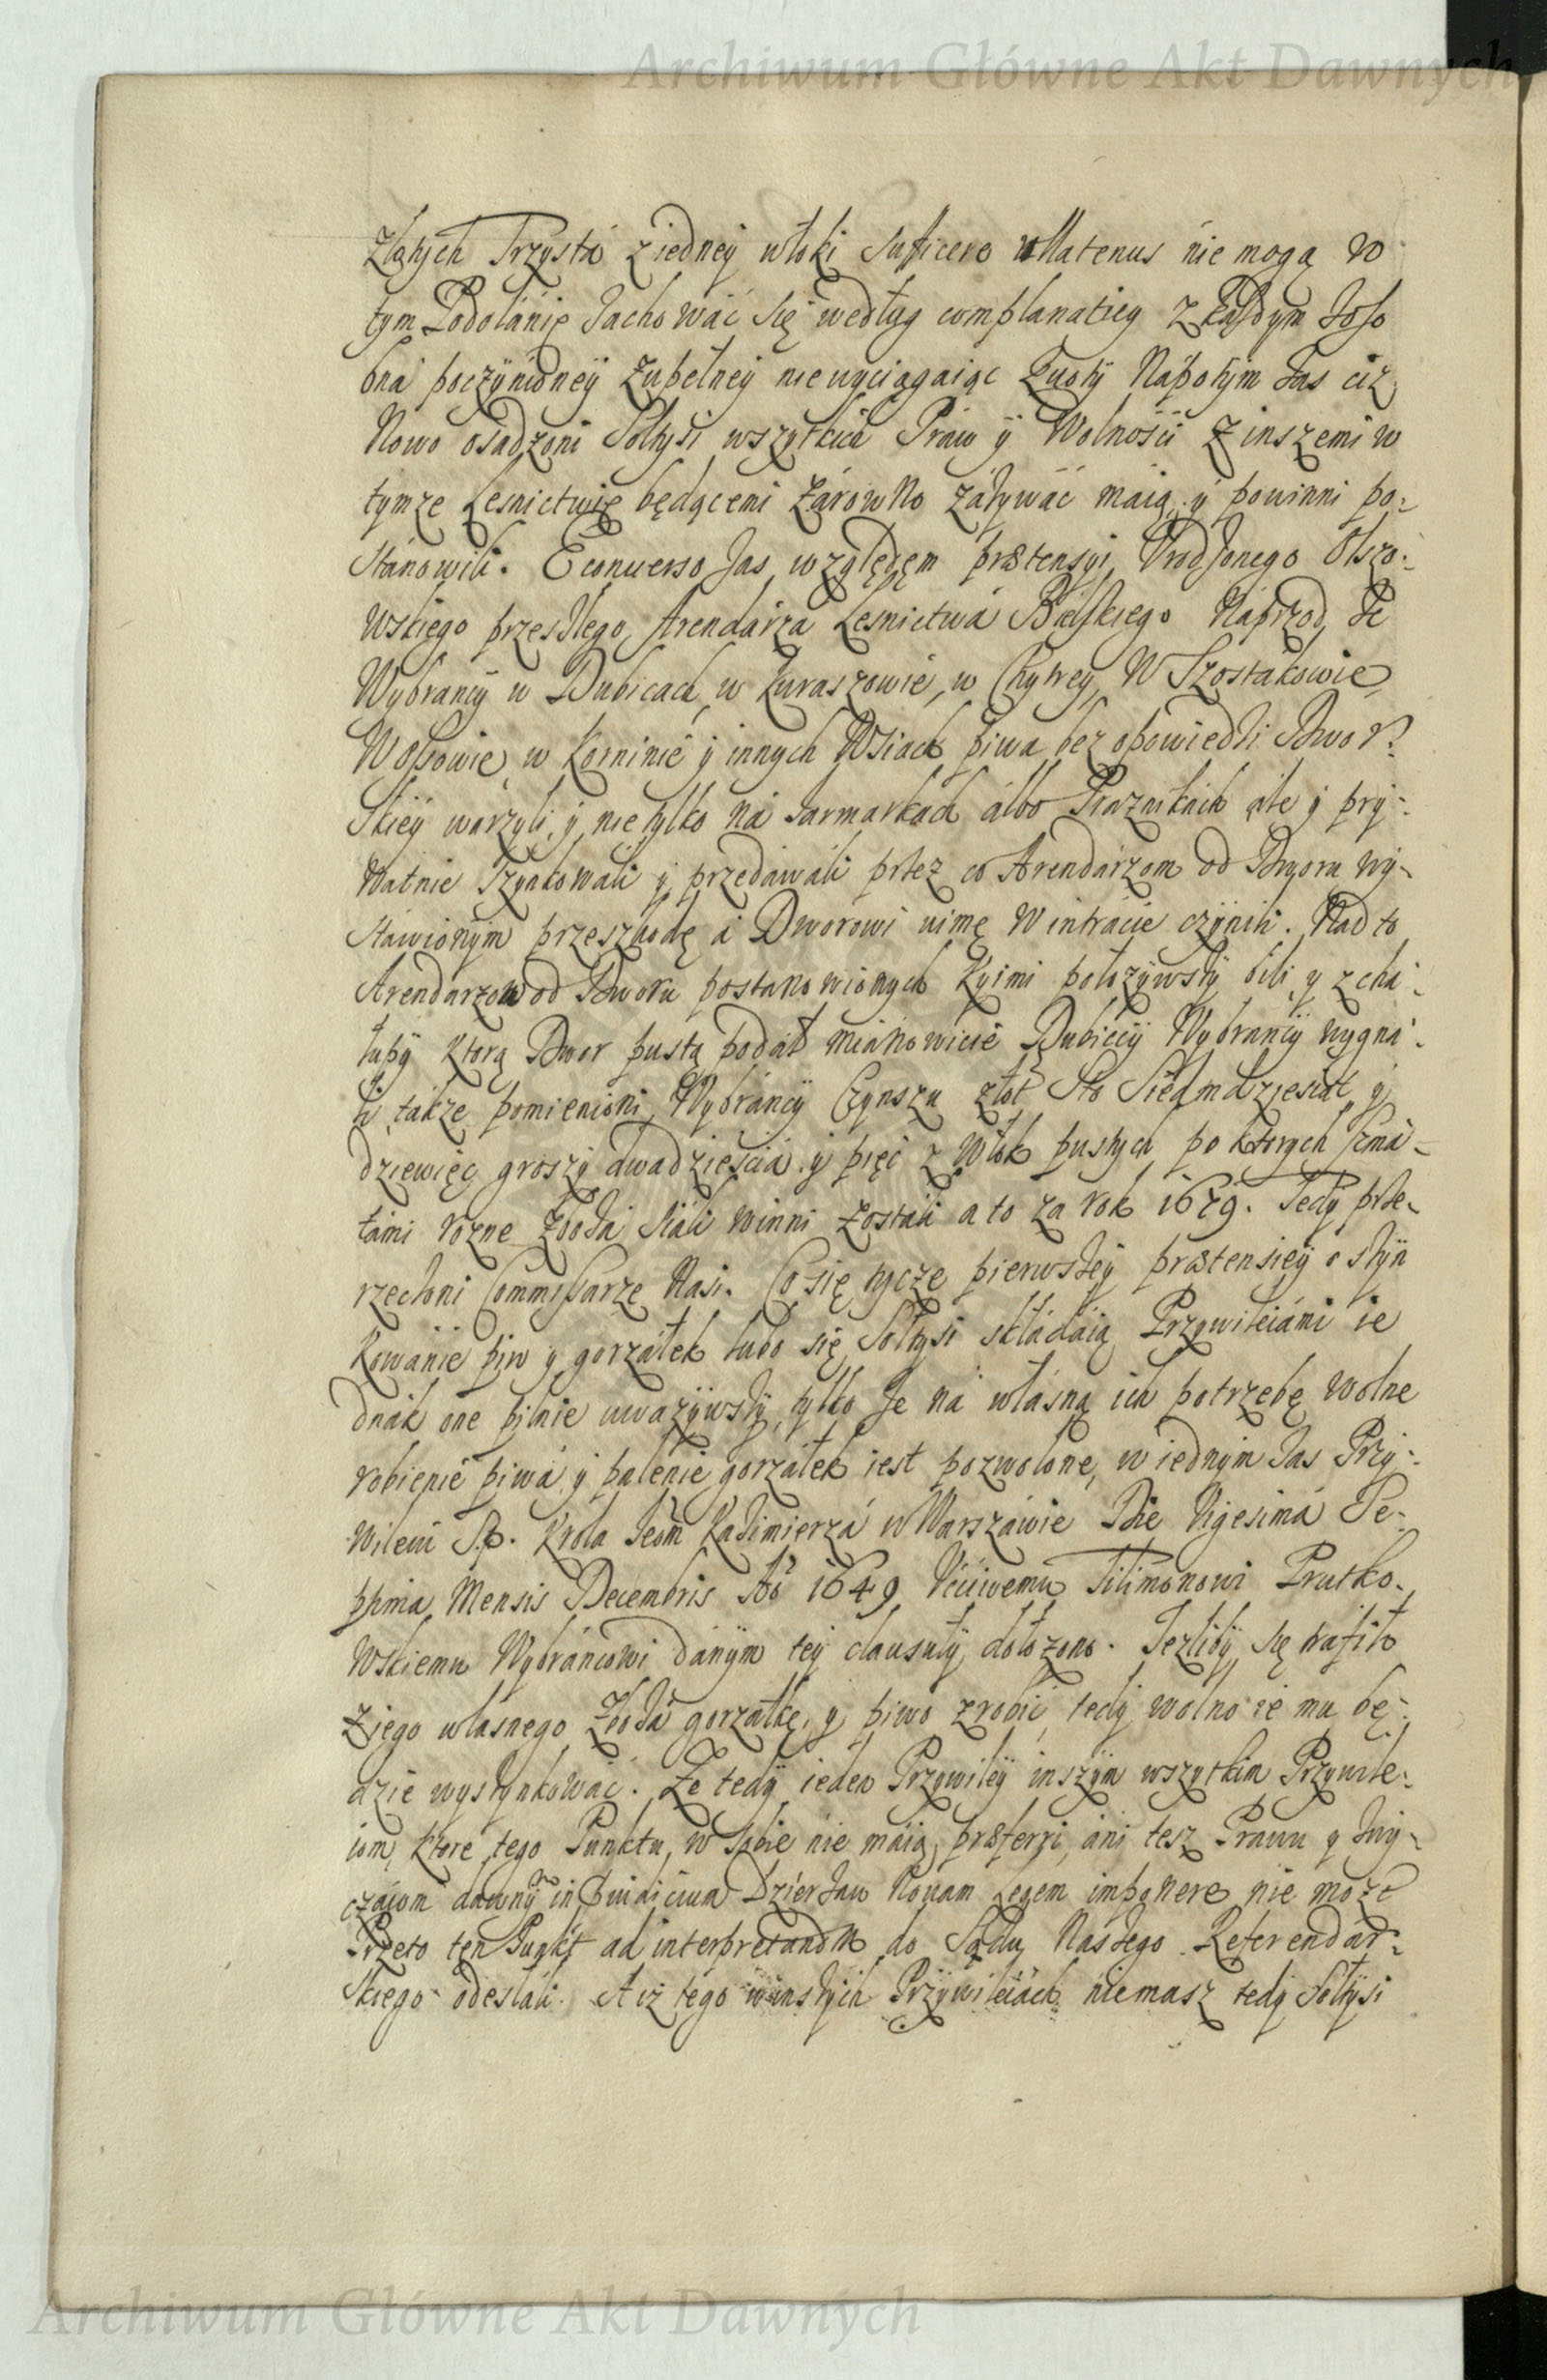 Archiwum Główne Akt Dawnych
Złotych Trzystá z iedney włoki suficere nie mogą w
tym Podolánię zachowáć się według complanatiey z każdym zoso
bná poczynioney zupełney nie wyciągaiąc Napotym zas ciż
Nowo osadzoni Sołtysi wszytkich Praw ÿ Wolności z inszemi w
tymze Lesnictwię będącemi zárowno záżywáć máią, ÿ powinni po-
stánowili. Econuerso zas względęm prætensyi Vrodzonego Olszo-
wskiego przeszłego Arendárza Lesnictwá Bielskiego Náprzod, że
Wybrancy w Dubicach, w Kuraszowie, w Chytrey, W Szostakowie,
w Korninie ÿ innych Wsiach piwa bez opowiedzi Dwor-
skiey warzyli, ÿ nie tylko ná Jarmarkach álbo Praznikách ále ÿ pry-
watnie szynkowáli ÿ przedawáli przez co Arendárzom od Dworu wy-
stáwionym przeszkodę á Dworowi uimę w intracie czynili. Nad to
Arendarzow od Dworu postanowionych kyimi położywszy bili, y z cha-
łupy ktorą Dwor pustą podał mianowicie Dubiccy Wybrancy wygna-
li, także pomienioni Wybrancy Czynszu złot Sto Siedmdziesiąt ÿ
dziewięc groszy dwadziescia ÿ pięć z Włok pustych, po ktorych szma-
tami rozne zboża siali winni zostali a to za rok 1679. Tedy prze-
rzeczoni Commissarze Nasi. Co się tycze pierwszey prætensiey o szyn
kowánie piw y gorzałek lubo się Sołtysi składáią Przywileiámi ie
dnák one pilnie uważywszy, tylko że ná własną ich potrzebę wolne
robienie piwá ÿ palenie gorzałek iest pozwolone, w iednym zas Przy-
wileiu S.p. Krola Jeom Kazimierzá w Warszáwie Die Vigesima Se-
ptima Mensis Decembris Aō 1649 Vcciwemu Filimonowi Prutko-
wskiemu Wybráncowi dánym tey clausuły dołożono. Iezliby się trafiło
z iego własnego zboża gorzałkę, y piwo zrobić, tedy wolno ie mu bę-
dzie wyszynkowáć. Ze tedy ieden Przywiley inszym wszytkim Przywile-
iom, ktore tego Punktu, w sobie nie máią, præferri, áni tesz Prawu y zwy-
czáiom dawnym in Dzierżaw Nouam Legem imponere nie może
Przeto ten Punkt ad interpretandm do Sądu Naszego Referendar-
skiego odesłali. A iż tego w inszych Przywileiách niemasz tedy Sołtysi
Archiwum Główne Akt Dawnych